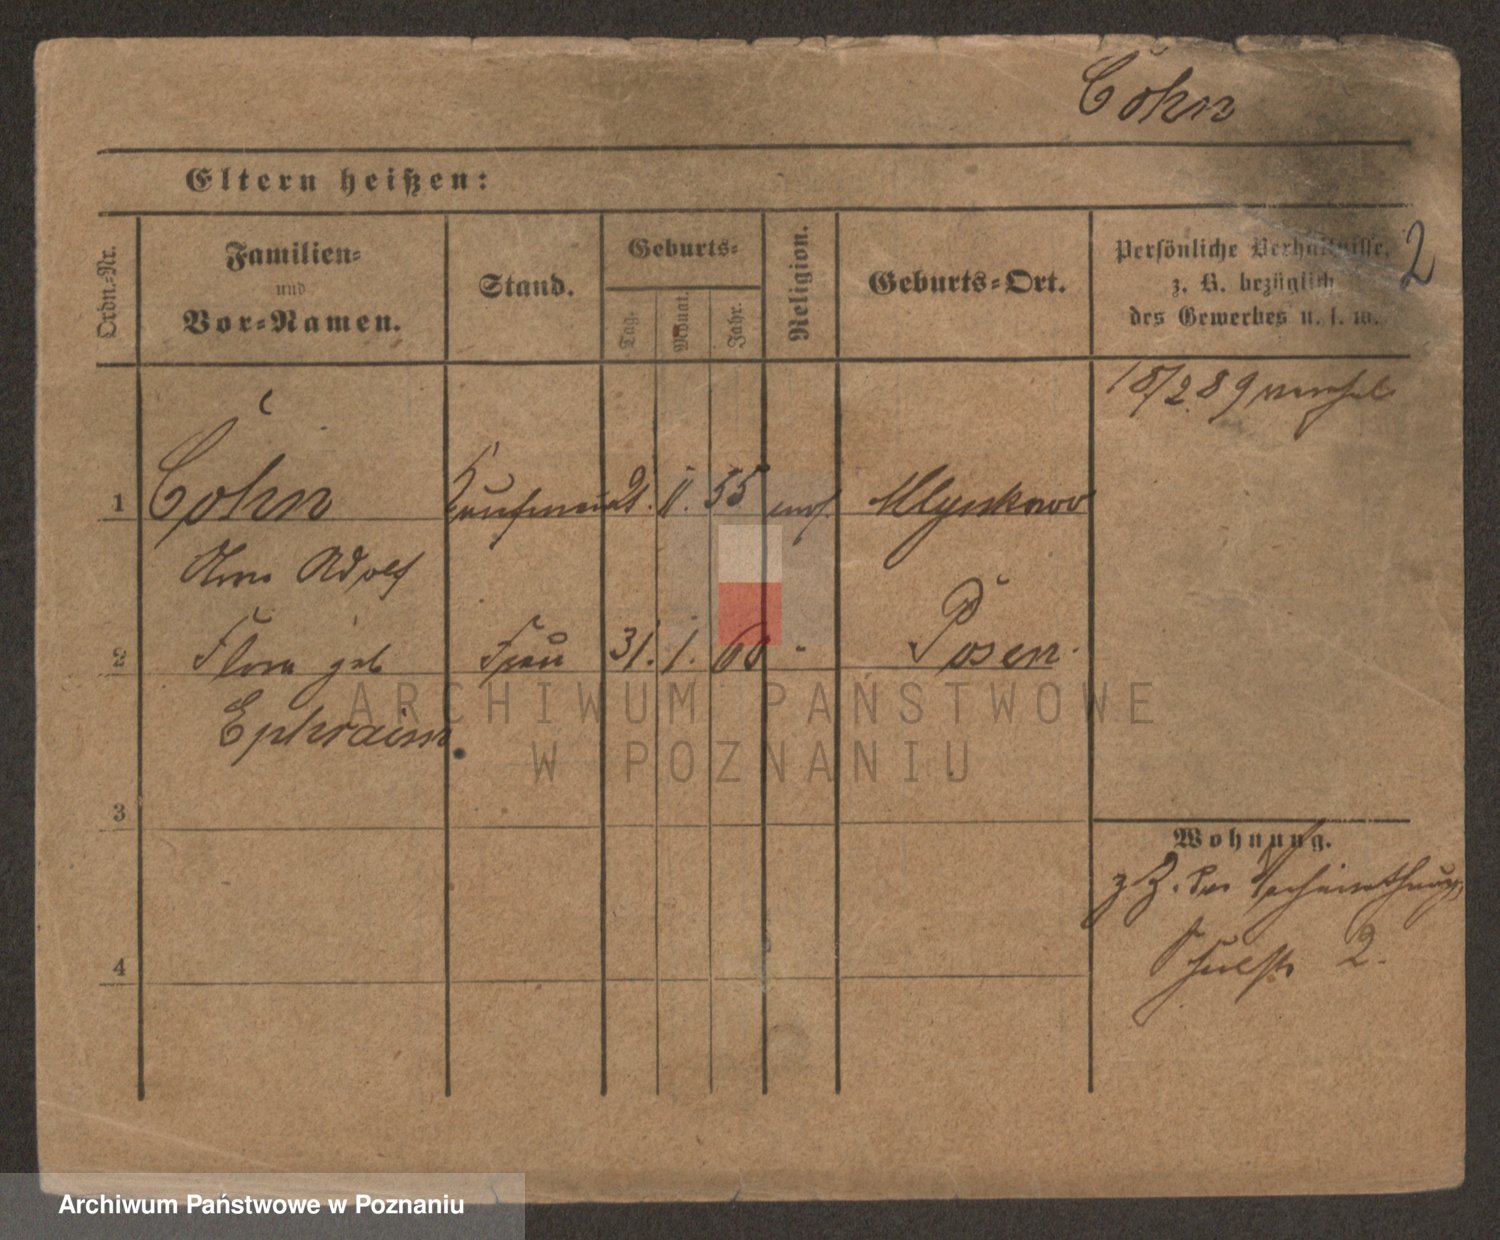 Cohn
Eltern heißen:
2
Ordn.-Nr.
Familien-
und
Vor-Namen.
Stand.
Geburts-
Tag.
Monat.
Jahr.
Religion.
Geburts-Ort.
Persönliche Verhältnisse,
z. B. bezüglich
des Gewerbes u. s. w.
18/2 89
1 Cohn Kaufmann 21. 11. 55 mos. Mlynkowo
Adolf
2 Flora geb Frau 31. 1. 60 - Posen
Ephraim
ARCHIWUM PAŃSTWOWE
W POZNANIU
3
Wohnung.
z Z.
2.
4
Archiwum Państwowe w Poznaniu